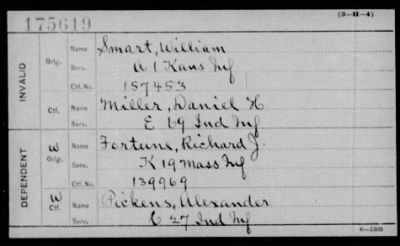 (3-H-4)
175619
INVALID
Orig.
Name Smart, William
Serv. A 1 Kans Inf
Ctf. No. 157453
Ctf.
Name Miller, Daniel H
Serv. E 69 Ind Inf
DEPENDENT
W
Orig.
Name Fortune, Richard J.
Serv. K 19 Mass Inf
Ctf. No. 139969
W
Ctf.
Name Pickens, Alexander
Serv. C 27 Ind Inf
6-1303